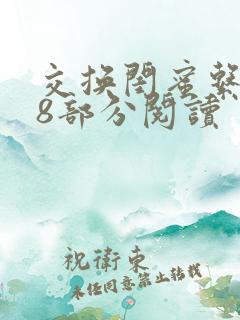 交换閨蜜繫
8部分閱讀
祝衛東
未经同意禁止转载